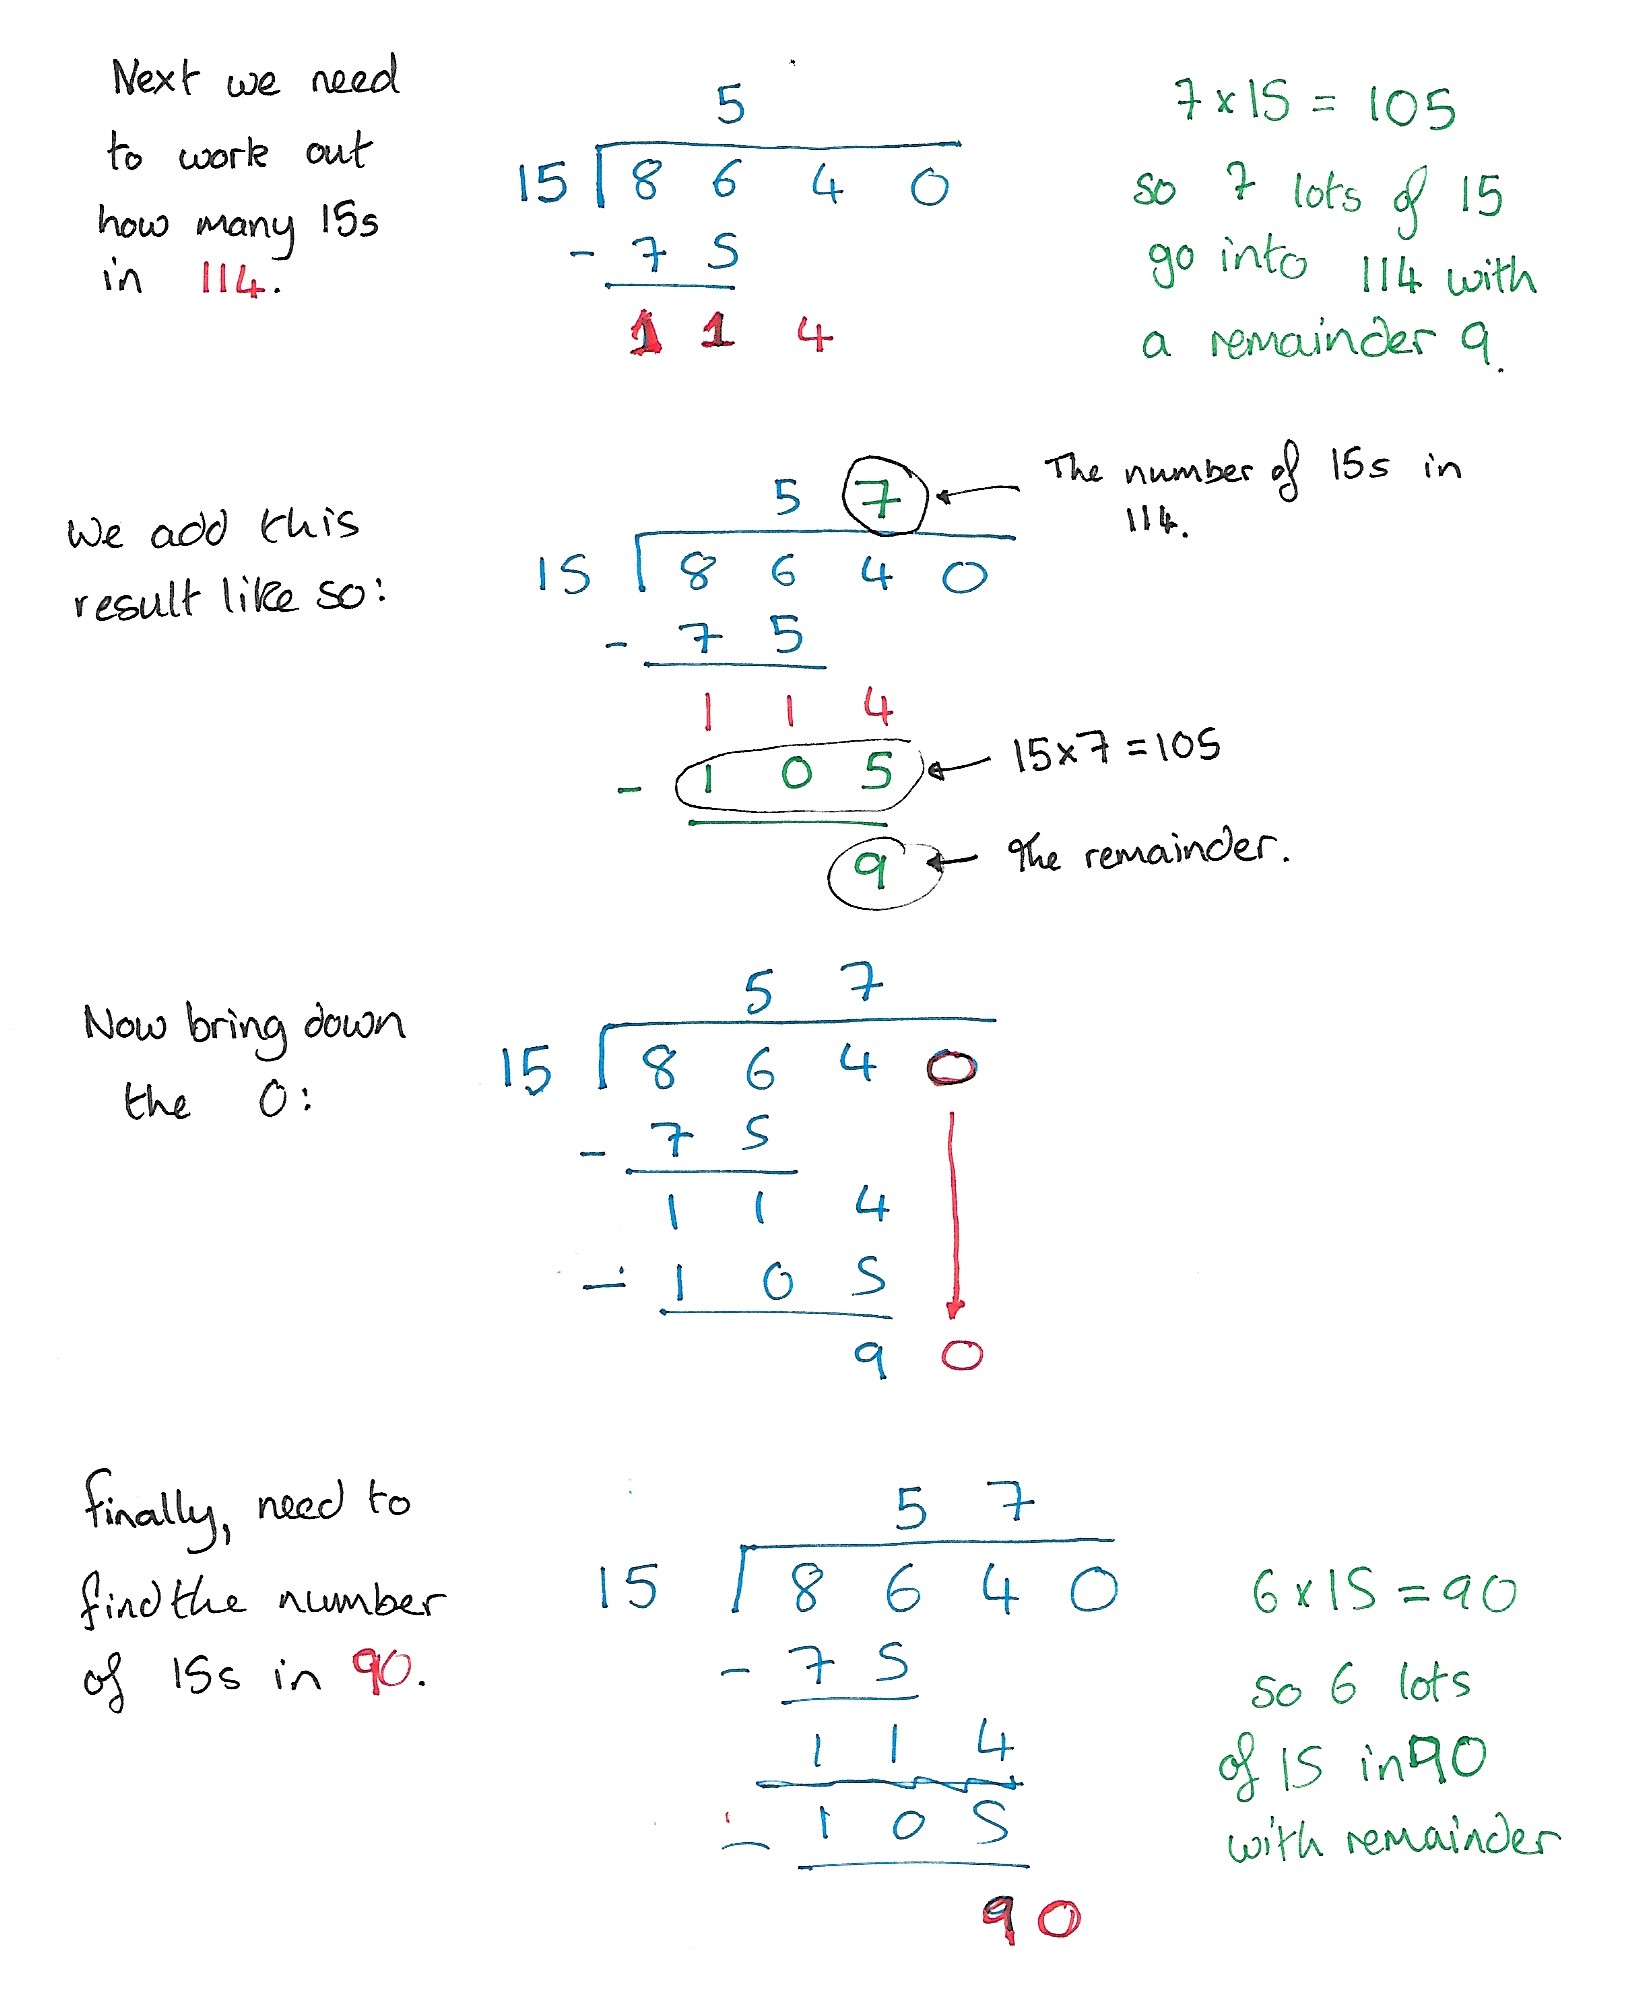 Next we need
to work out
how many 15s
in 114.
5
15 8 6 4 0
- 7 5
1 1 4
7 x 15 = 105
so 7 lots of 15
go into 114 with
a remainder 9.
We add this
result like so:
5 7
The number of 15s in
114.
15 8 6 4 0
- 7 5
1 1 4
- 1 0 5
15 x 7 = 105
9
The remainder.
Now bring down
the 0:
5 7
15 8 6 4 0
- 7 5
1 1 4
- 1 0 5
9 0
finally, need to
find the number
of 15s in 90.
5 7
15 8 6 4 0
- 7 5
1 1 4
- 1 0 5
9 0
6 x 15 = 90
so 6 lots
of 15 in 90
with remainder